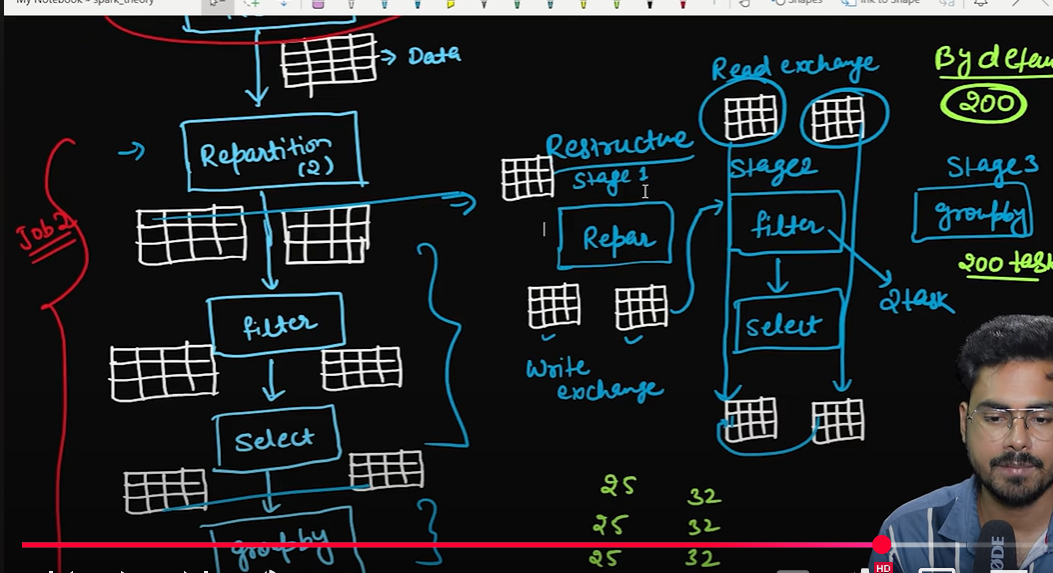 My Notebook » spark_theory
Shapes
Ink to Shape
Data
Repartition
(2)
Job2
filter
Select
groupby
Restructure
Stage 1
Repar
Write
exchange
Read exchange
Stage2
filter
Select
2task
By defau
200
Stage3
groupby
200 task
25 32
25 32
25 32
HD